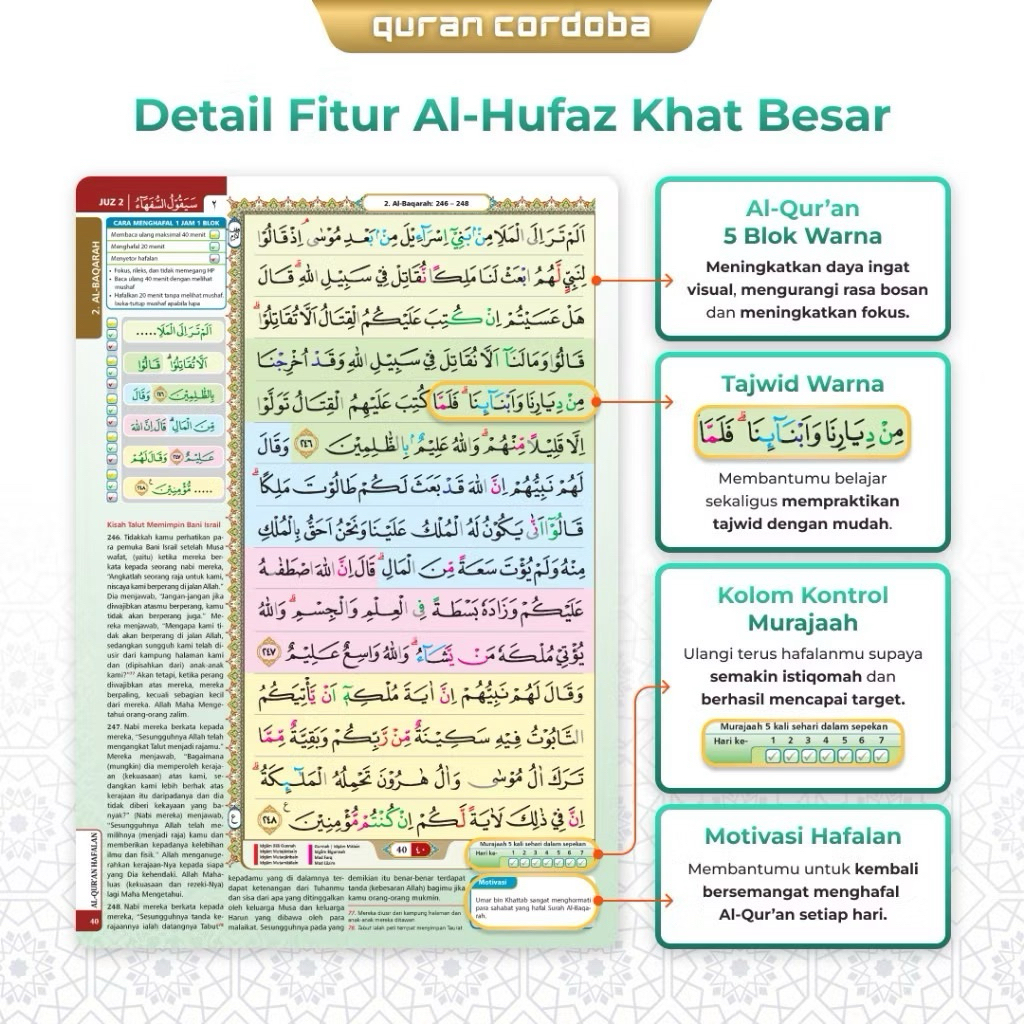 quran cordoba
Detail Fitur Al-Hufaz Khat Besar
JUZ 2
سَيَقُوْلُ السُّفَهَاۤءُ
٢
2. Al-Baqarah: 246 – 248
2. AL-BAQARAH
CARA MENGHAFAL 1 JAM 1 BLOK
Membaca ulang maksimal 40 menit
Menghafal 20 menit
Menyetor hafalan
• Fokus, rileks, dan tidak memegang HP
• Baca ulang 40 menit dengan melihat
mushaf
• Hafalkan 20 menit tanpa melihat mushaf.
اَلَمْ تَرَ اِلَى الْمَلَاِ.....
اَلَّا تُقَاتِلُوْاۗ قَالُوْا
بِالظّٰلِمِيْنَ ٢٤٦ وَقَالَ
مِّنَ الْمَالِۗ قَالَ اِنَّ اللّٰهَ
عَلِيْمٌ ٢٤٧ وَقَالَ لَهُمْ
..... مُّؤْمِنِيْنَ ٢٤٨
اَلَمْ تَرَ اِلَى الْمَلَاِ مِنْۢ بَنِيْٓ اِسْرَاۤءِيْلَ مِنْۢ بَعْدِ مُوْسٰىۘ اِذْ قَالُوْا
لِنَبِيٍّ لَّهُمُ ابْعَثْ لَنَا مَلِكًا نُّقَاتِلْ فِيْ سَبِيْلِ اللّٰهِۗ قَالَ
هَلْ عَسَيْتُمْ اِنْ كُتِبَ عَلَيْكُمُ الْقِتَالُ اَلَّا تُقَاتِلُوْاۗ
قَالُوْا وَمَا لَنَآ اَلَّا نُقَاتِلَ فِيْ سَبِيْلِ اللّٰهِ وَقَدْ اُخْرِجْنَا
مِنْ دِيَارِنَا وَاَبْنَاۤىِٕنَاۗ فَلَمَّا كُتِبَ عَلَيْهِمُ الْقِتَالُ تَوَلَّوْا
اِلَّا قَلِيْلًا مِّنْهُمْۗ وَاللّٰهُ عَلِيْمٌۢ بِالظّٰلِمِيْنَ ٢٤٦ وَقَالَ
لَهُمْ نَبِيُّهُمْ اِنَّ اللّٰهَ قَدْ بَعَثَ لَكُمْ طَالُوْتَ مَلِكًاۗ
قَالُوْٓا اَنّٰى يَكُوْنُ لَهُ الْمُلْكُ عَلَيْنَا وَنَحْنُ اَحَقُّ بِالْمُلْكِ
مِنْهُ وَلَمْ يُؤْتَ سَعَةً مِّنَ الْمَالِۗ قَالَ اِنَّ اللّٰهَ اصْطَفٰىهُ
عَلَيْكُمْ وَزَادَهٗ بَسْطَةً فِى الْعِلْمِ وَالْجِسْمِۗ وَاللّٰهُ
يُؤْتِيْ مُلْكَهٗ مَنْ يَّشَاۤءُۗ وَاللّٰهُ وَاسِعٌ عَلِيْمٌ ٢٤٧
وَقَالَ لَهُمْ نَبِيُّهُمْ اِنَّ اٰيَةَ مُلْكِهٖٓ اَنْ يَّأْتِيَكُمُ
التَّابُوْتُ فِيْهِ سَكِيْنَةٌ مِّنْ رَّبِّكُمْ وَبَقِيَّةٌ مِّمَّا
تَرَكَ اٰلُ مُوْسٰى وَاٰلُ هٰرُوْنَ تَحْمِلُهُ الْمَلٰۤىِٕكَةُۗ
اِنَّ فِيْ ذٰلِكَ لَاٰيَةً لَّكُمْ اِنْ كُنْتُمْ مُّؤْمِنِيْنَ ٢٤٨
40 ٤٠
Murajaah 5 kali sehari dalam sepekan
Hari ke- 1 2 3 4 5 6 7
Kisah Talut Memimpin Bani Israil
246. Tidakkah kamu perhatikan pa-
ra pemuka Bani Israil setelah Musa
wafat, (yaitu) ketika mereka ber-
kata kepada seorang nabi mereka,
"Angkatlah seorang raja untuk kami,
niscaya kami berperang di jalan Allah."
Dia menjawab, "Jangan-jangan jika
diwajibkan atasmu berperang, kamu
tidak akan berperang juga." Me-
reka menjawab, "Mengapa kami ti-
dak akan berperang di jalan Allah,
sedangkan sungguh kami telah di-
usir dari kampung halaman kami
dan (dipisahkan dari) anak-anak
kami?"⁷⁷ Akan tetapi, ketika perang
diwajibkan atas mereka, mereka
berpaling, kecuali sebagian kecil
dari mereka. Allah Maha Menge-
tahui orang-orang zalim.
247. Nabi mereka berkata kepada
mereka, "Sesungguhnya Allah telah
mengangkat Talut menjadi rajamu."
Mereka menjawab, "Bagaimana
(mungkin) dia memperoleh keraja-
an (kekuasaan) atas kami, se-
dangkan kami lebih berhak atas
kerajaan itu daripadanya dan dia
tidak diberi kekayaan yang ba-
nyak?" (Nabi mereka) menjawab,
"Sesungguhnya Allah telah me-
milihnya (menjadi raja) kamu dan
memberikan kepadanya kelebihan
ilmu dan fisik." Allah menganuge-
rahkan kerajaan-Nya kepada siapa
yang Dia kehendaki. Allah Maha-
luas (kekuasaan dan rezeki-Nya)
lagi Maha Mengetahui.
248. Nabi mereka berkata kepada
mereka, "Sesungguhnya tanda ke-
rajaannya ialah datangnya Tabut⁷⁸
AL-QUR'AN HAFALAN
40
kepadamu yang di dalamnya ter-
dapat ketenangan dari Tuhanmu
dan sisa dari apa yang ditinggalkan
oleh keluarga Musa dan keluarga
Harun yang dibawa oleh para
malaikat. Sesungguhnya pada yang
demikian itu benar-benar terdapat
tanda (kebesaran Allah) bagimu jika
kamu orang-orang mukmin.
77. Mereka diusir dari kampung halaman dan
anak-anak mereka ditawan
Motivasi
Umar bin Khattab sangat menghormati
para sahabat yang hafal Surah Al-Baqa-
rah.
Al-Qur'an
5 Blok Warna
Meningkatkan daya ingat
visual, mengurangi rasa bosan
dan meningkatkan fokus.
Tajwid Warna
مِنْ دِيَارِنَا وَاَبْنَاۤىِٕنَاۗ فَلَمَّا
Membantumu belajar
sekaligus mempraktikan
tajwid dengan mudah.
Kolom Kontrol
Murajaah
Ulangi terus hafalanmu supaya
semakin istiqomah dan
berhasil mencapai target.
Murajaah 5 kali sehari dalam sepekan
Hari ke- 1 2 3 4 5 6 7
Motivasi Hafalan
Membantumu untuk kembali
bersemangat menghafal
Al-Qur'an setiap hari.